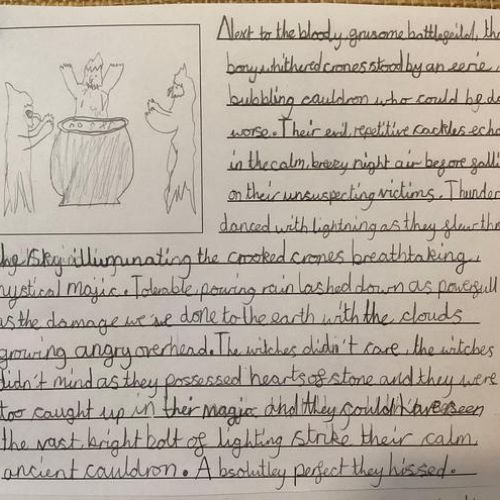 Next to the bloody, grusome battlegeild, the
bony, whithered crones stood by an eerie,
bubbling cauldron who could be do
worse. Their evil, repetitive cackles echo
in the calm, breezy night air begore galli
on their unsuspecting victims. Thunder
danced with lightning as they glew thr
the sky illuminating the crooked crones breathtaking,
mystical magic. Tolerable, powring rain lashed down as powerfull
as the damage we've done to the earth with the clouds
growing angry overhead. The witches didn't care, the witches
didn't mind as they possessed hearts of stone and they were
too caught up in their magic and they could have seen
the vast, bright bolt of lighting strike their calm
ancient cauldron. Absolutley perfect they hissed.